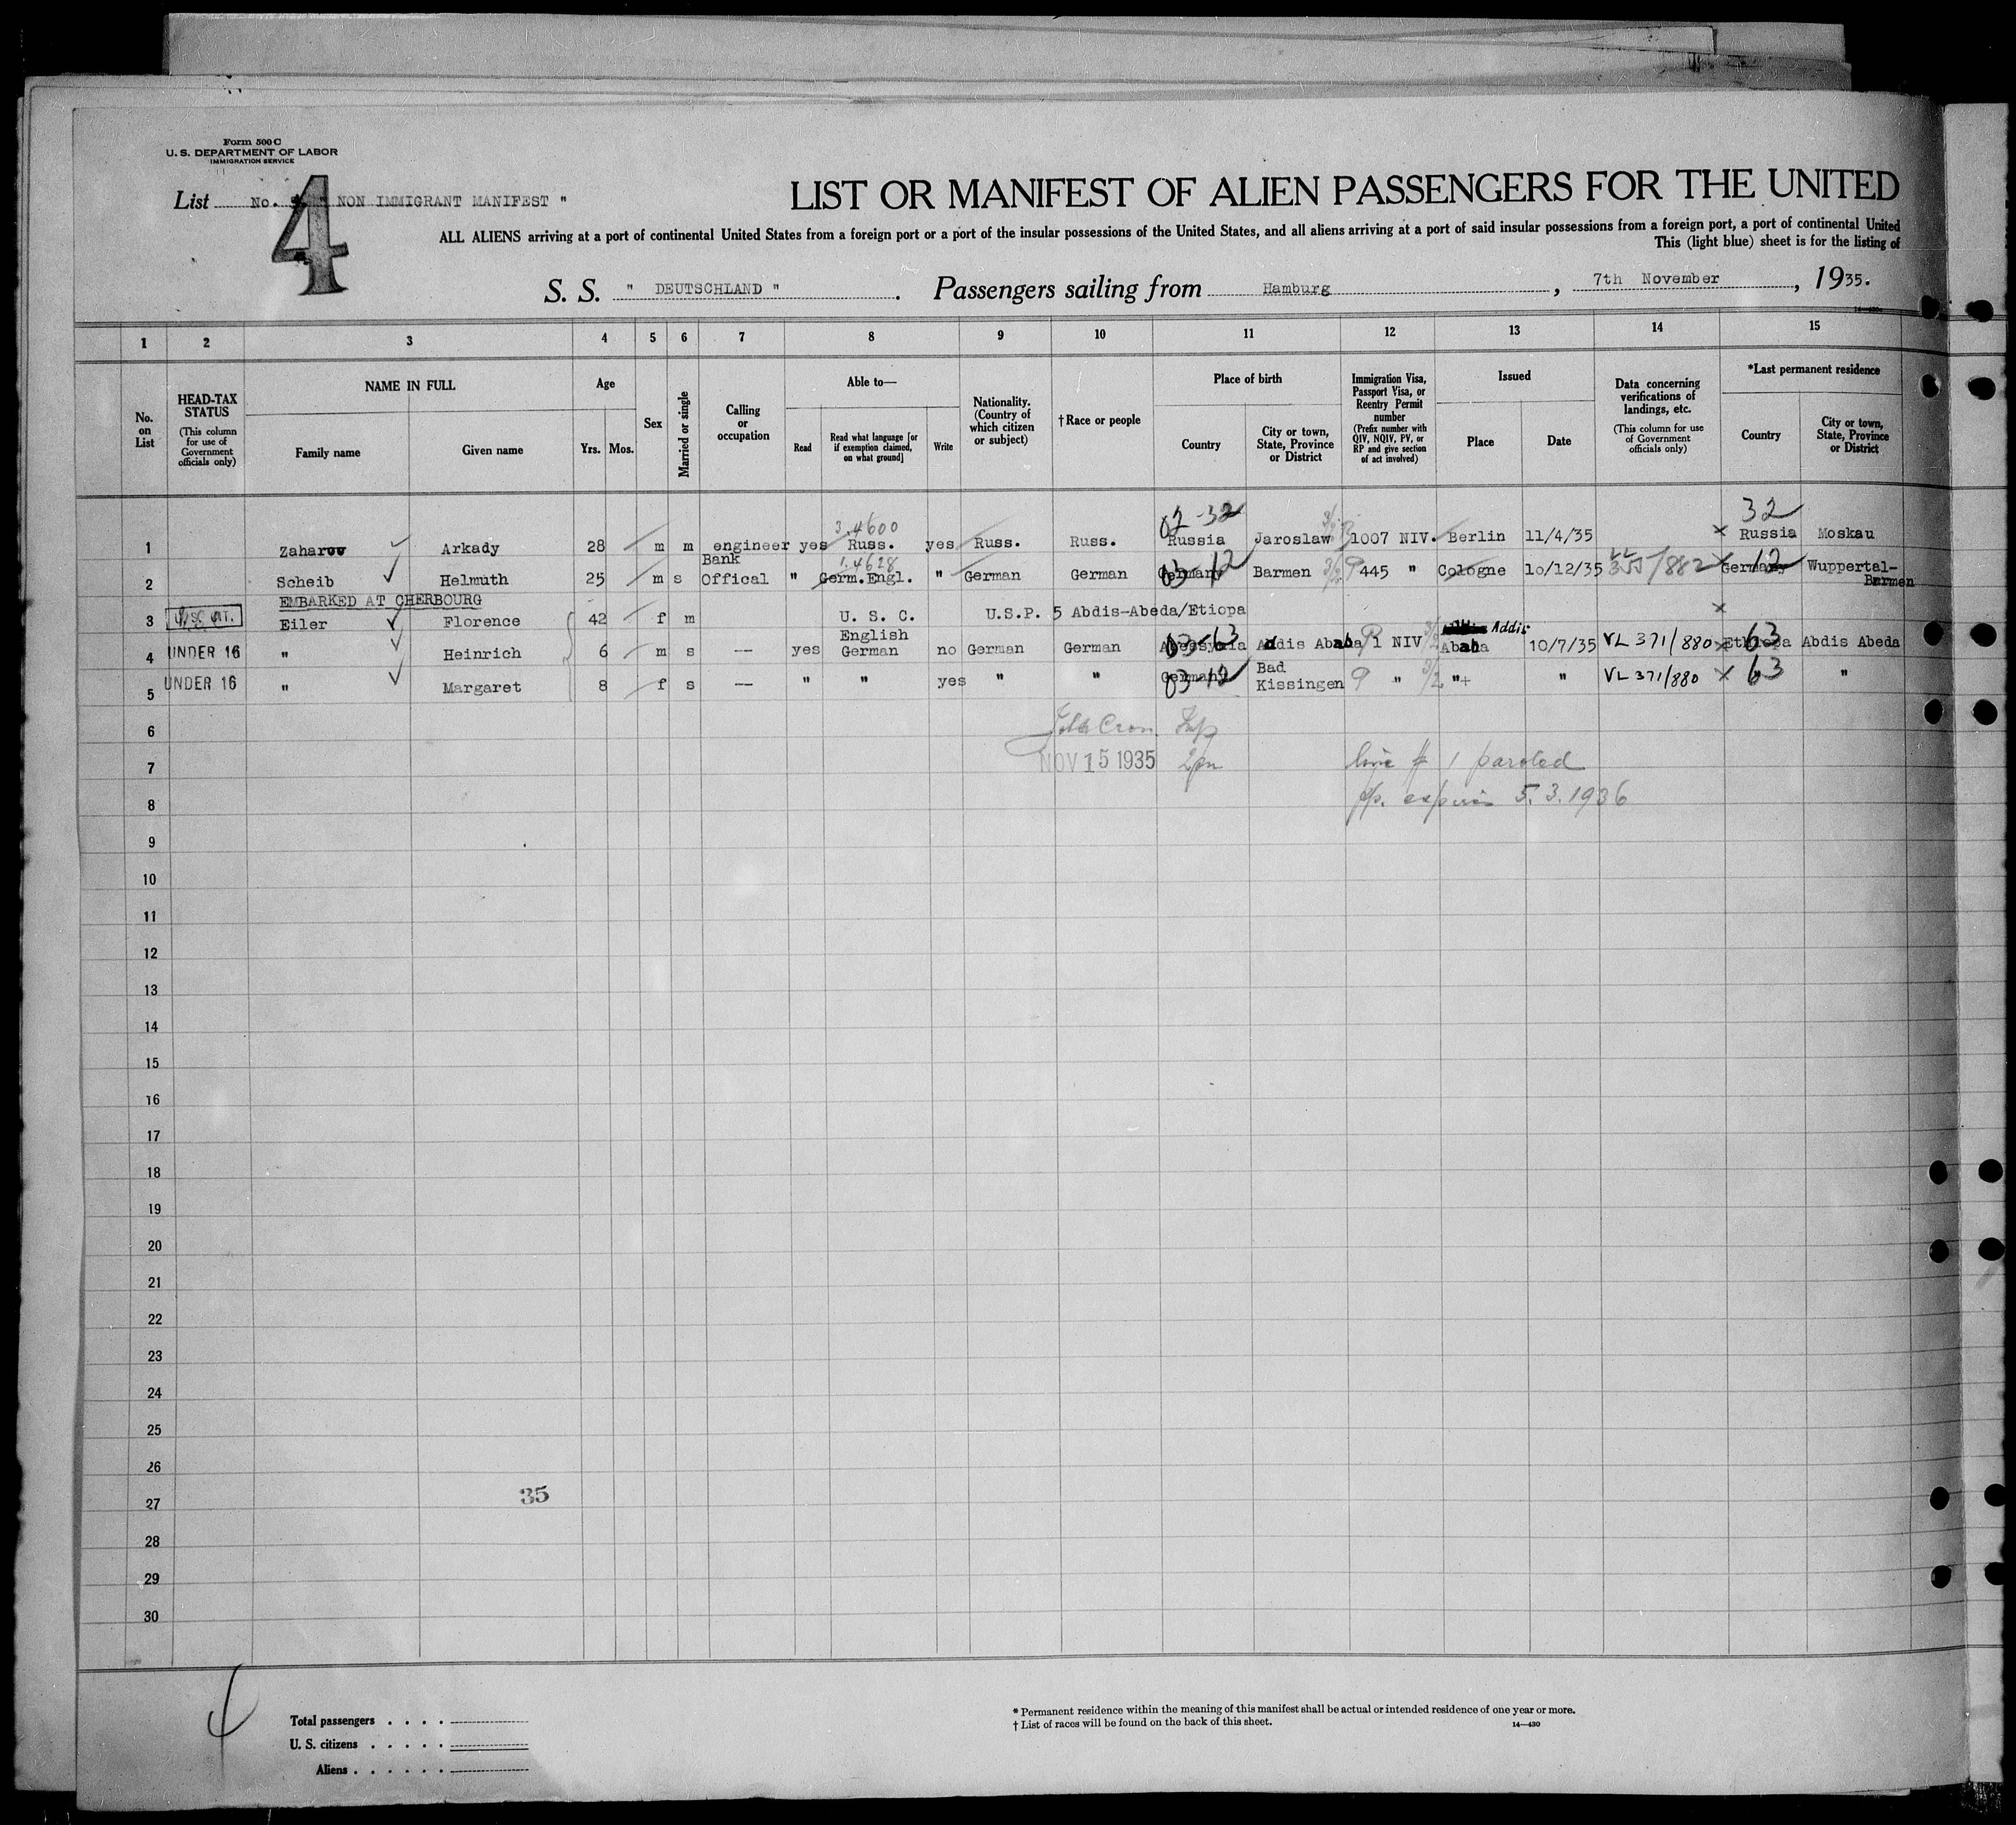 Form 500 C
U. S. DEPARTMENT OF LABOR
IMMIGRATION SERVICE
List No. 4 " NON IMMIGRANT MANIFEST "
LIST OR MANIFEST OF ALIEN PASSENGERS FOR THE UNITED
ALL ALIENS arriving at a port of continental United States from a foreign port or a port of the insular possessions of the United States, and all aliens arriving at a port of said insular possessions from a foreign port, a port of continental United
This (light blue) sheet is for the listing of
S. S. " DEUTSCHLAND " . Passengers sailing from Hamburg , 7th November , 1935.
1 2 3 4 5 6 7 8 9 10 11 12 13 14 15
No. on List
HEAD-TAX STATUS (This column for use of Government officials only)
NAME IN FULL
Family name
Given name
Age
Yrs. Mos.
Sex
Married or single
Calling or occupation
Able to—
Read
Read what language [or if exemption claimed, on what ground]
Write
Nationality. (Country of which citizen or subject)
† Race or people
Place of birth
Country
City or town, State, Province or District
Immigration Visa, Passport Visa, or Reentry Permit number (Prefix number with QIV, NQIV, PV, or RP and give section of act involved)
Issued
Place
Date
Data concerning verifications of landings, etc. (This column for use of Government officials only)
*Last permanent residence
Country
City or town, State, Province or District
3.4600 02-32 32
1 Zaharov Arkady 28 m m engineer yes Russ. yes Russ. Russ. Russia Jaroslaw 1007 NIV. Berlin 11/4/35 x Russia Moskau
Bank 1.4628 03-12 12
2 Scheib Helmuth 25 m s Offical " Germ.Engl. " German German Germany Barmen 445 " Cologne 10/12/35 /882 x Germany Wuppertal-Barmen
EMBARKED AT CHERBOURG
3 Eiler Florence 42 f m U. S. C. U.S.P. 5 Abdis-Abeda/Etiopa x
English 03-63 Addis 63
4 UNDER 16 " Heinrich 6 m s — yes German no German German Abessynia Addis Ababa P 1 NIV Ababa 10/7/35 VL 371/880 x Ethiopa Abdis Abeda
5 UNDER 16 " Margaret 8 f s — " " yes " " Germany 03-12 Bad Kissingen P " "+ " VL 371/880 x 63 "
6
7 NOV 15 1935 2pm line # 1 paroled
8 pp. expires 5.3.1936
9
10
11
12
13
14
15
16
17
18
19
20
21
22
23
24
25
26
27 35
28
29
30
4
Total passengers . . . .
U. S. citizens . . . . .
Aliens . . . . . .
* Permanent residence within the meaning of this manifest shall be actual or intended residence of one year or more.
† List of races will be found on the back of this sheet. 14—430